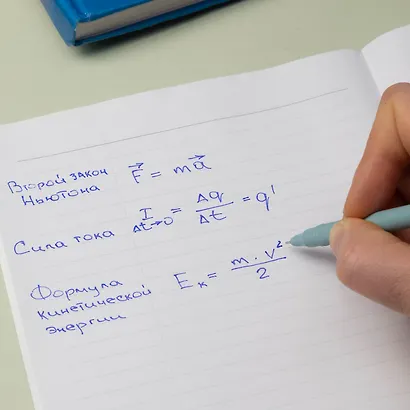 Второй закон
Ньютона F⃗ = ma⃗
Сила тока I = Δq/Δt = q'
Δt→0
Формула
кинетической
энергии Eк = m·v²/2